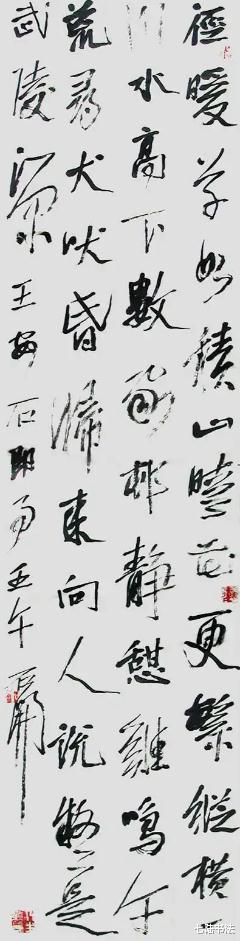 徑暖草如積山晴花更繁縱橫一
川水高下數家邨靜憩雞鳴午
荒尋犬吠昏歸來向人說疑是
武陵源王安石即事午石開
书法